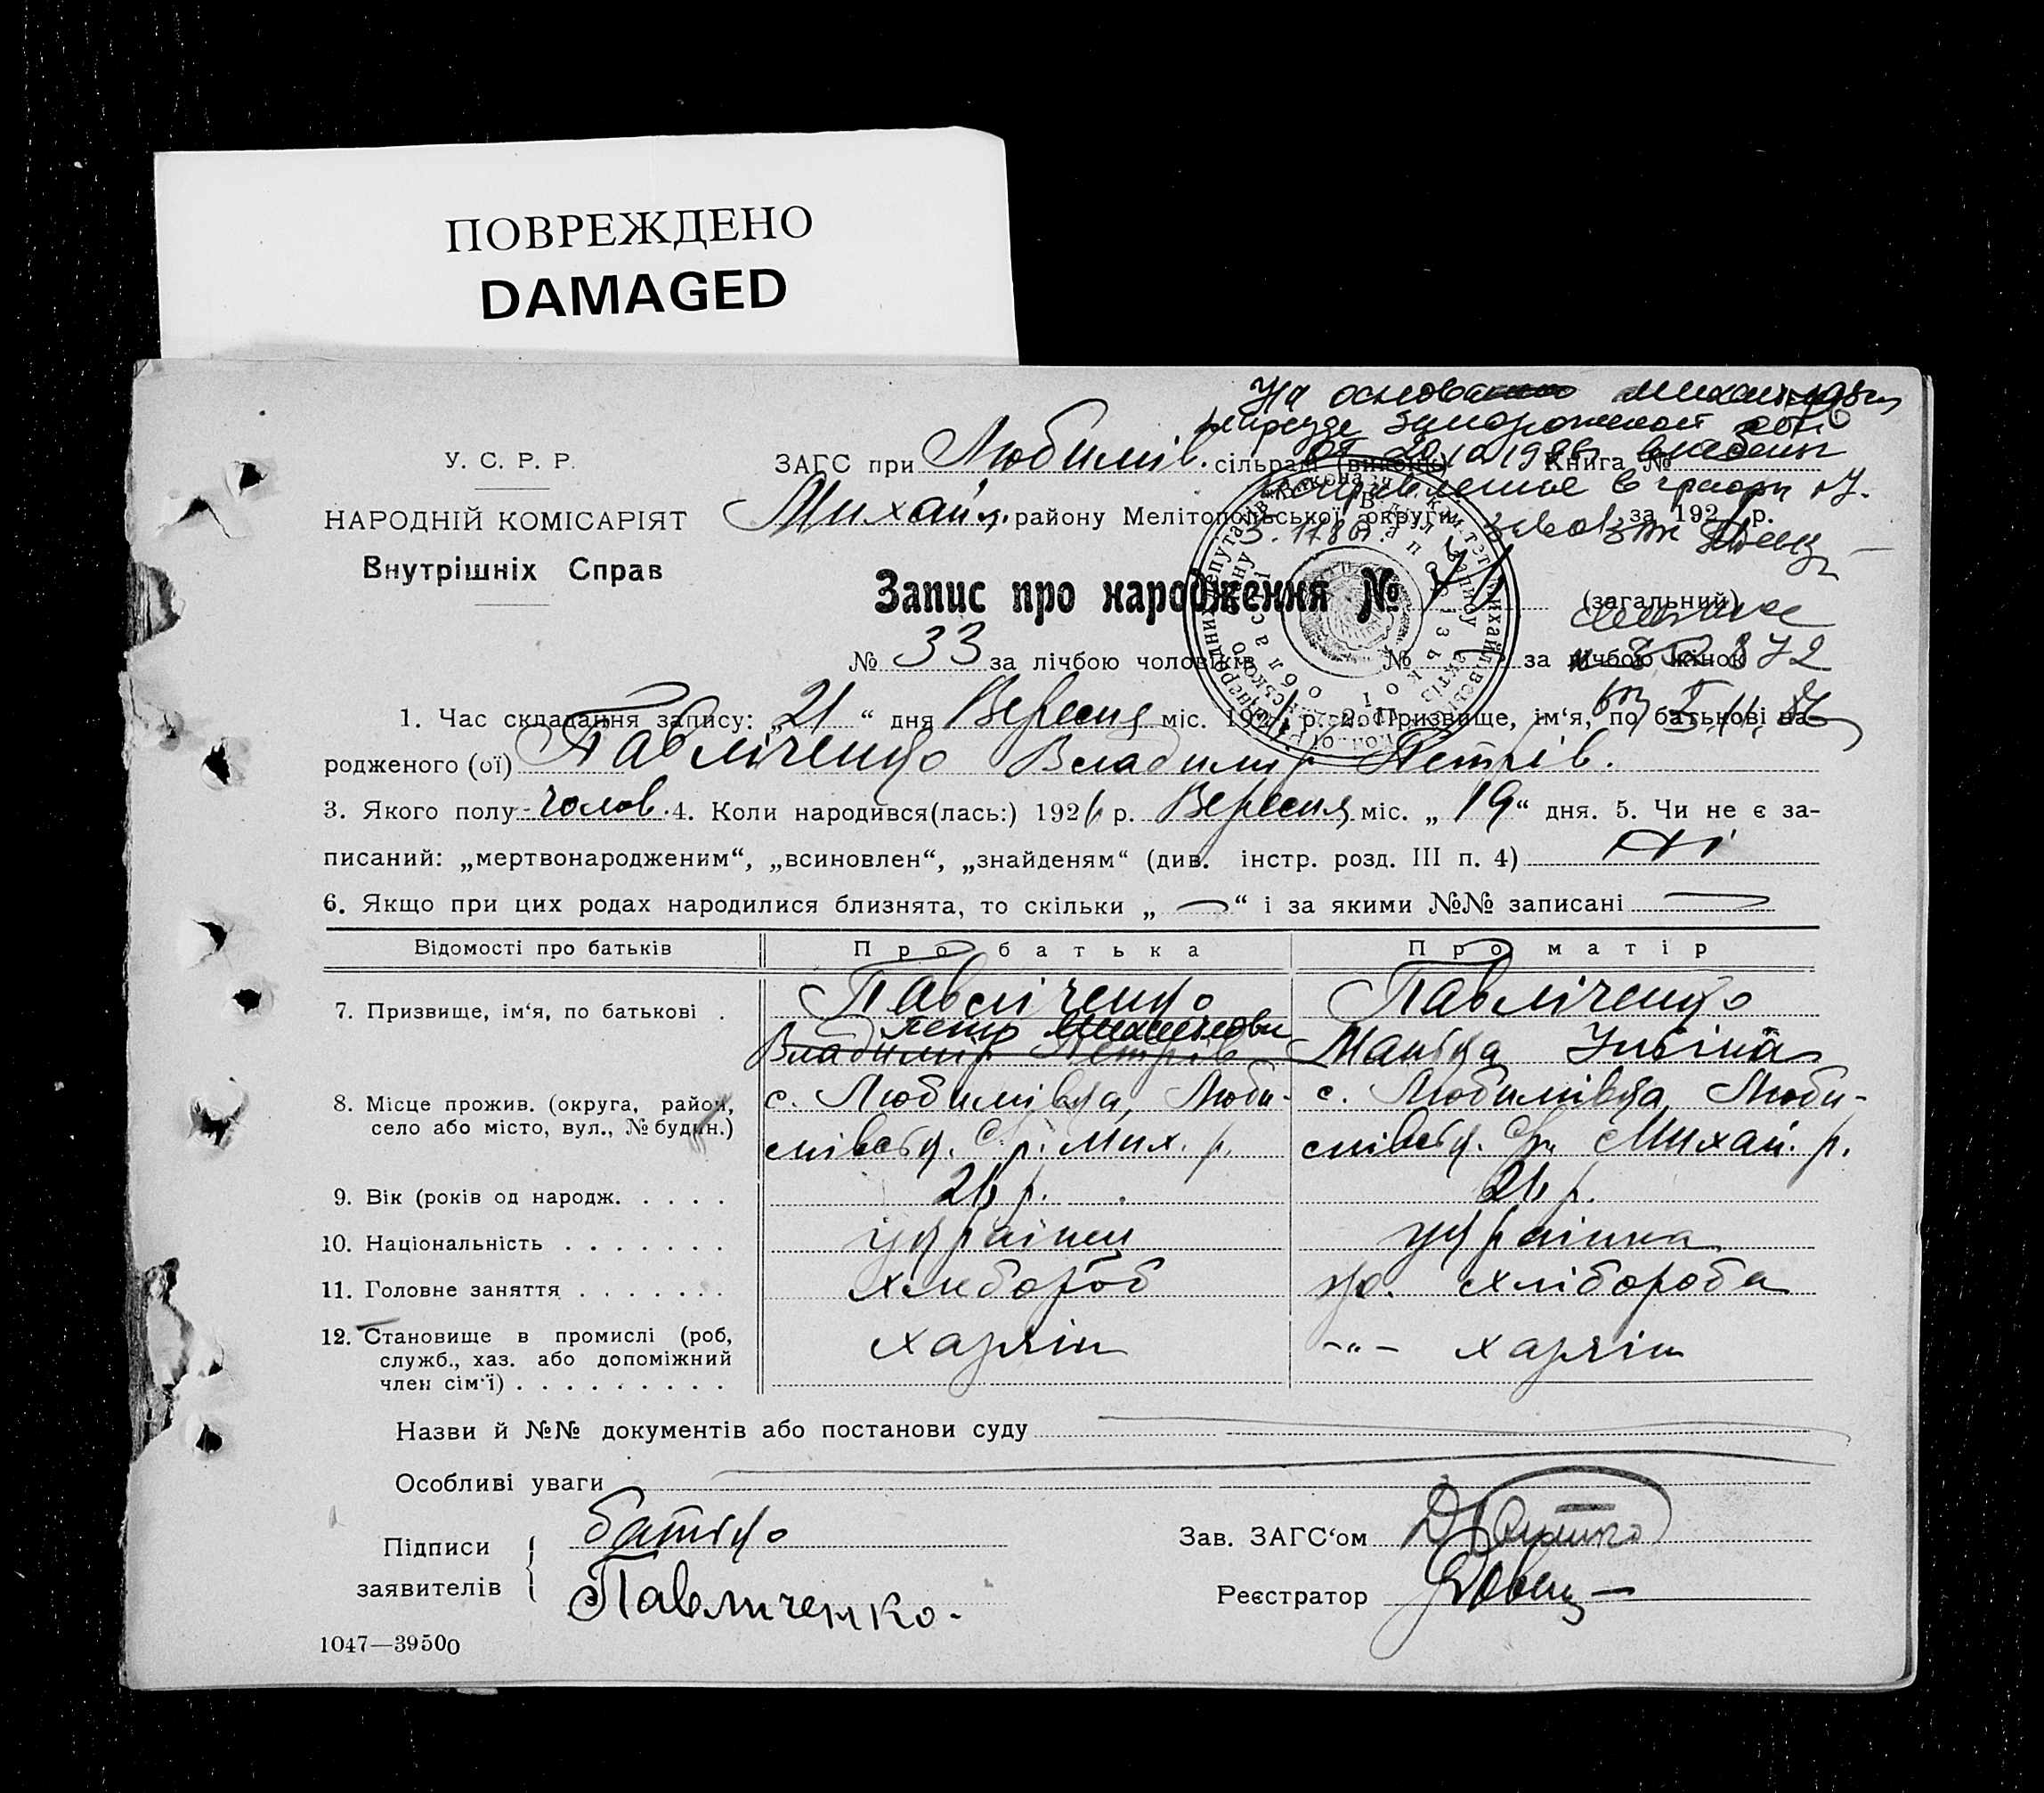 ПОВРЕЖДЕНО
DAMAGED
На основании
от 1986г внесены
исправление в графы
У. С. Р. Р. ЗАГС при Любимів. сільраді (виконк) Книга №
НАРОДНІЙ КОМІСАРІЯТ Михайл. району Мелітопольської округи за 192 р.
Внутрішніх Справ
Запис про народження № (загальний)
№ 33 за лічбою чоловіків № — за лічбою жінок
1. Час складання запису: „21“ дня Вересня міс. 192 р. 2. Призвище, ім‘я, по батькові на-
родженого (ої) Павліченко Владимир Петрів.
3. Якого полу чолов. 4. Коли народився(лась:) 192 р. Вересня міс. „19“ дня. 5. Чи не є за-
писаний: „мертвонародженим“, „всиновлен“, „знайденям“ (див. інстр. розд. III п. 4) Ні
6. Якщо при цих родах народилися близнята, то скільки „ — “ і за якими №№ записані —
Відомості про батьків Про батька Про матір
7. Призвище, ім‘я, по батькові . Павліченко Павліченко
Петр Михайлович
Владимир Петрів
8. Місце прожив. (округа, район, с. Любимівка, Люби- с. Любимівка, Люби-
село або місто, вул., № будин.) мівськ. С. р. Мих. р. мівськ. Ср. Михай. р.
9. Вік (років од народж. . . . . 26 р. 26 р.
10. Національність . . . . . . . українец українка
11. Головне заняття . . . . . . . хлибороб хлібороба
12. Становище в промислі (роб, хазяін -„- хазяін
служб., хаз. або допоміжний
член сім‘ї) . . . . . . . . .
Назви й №№ документів або постанови суду
Особливі уваги
Підписи заявителів батько
Павличенко.
Зав. ЗАГС‘ом
Реєстратор
1047—39500